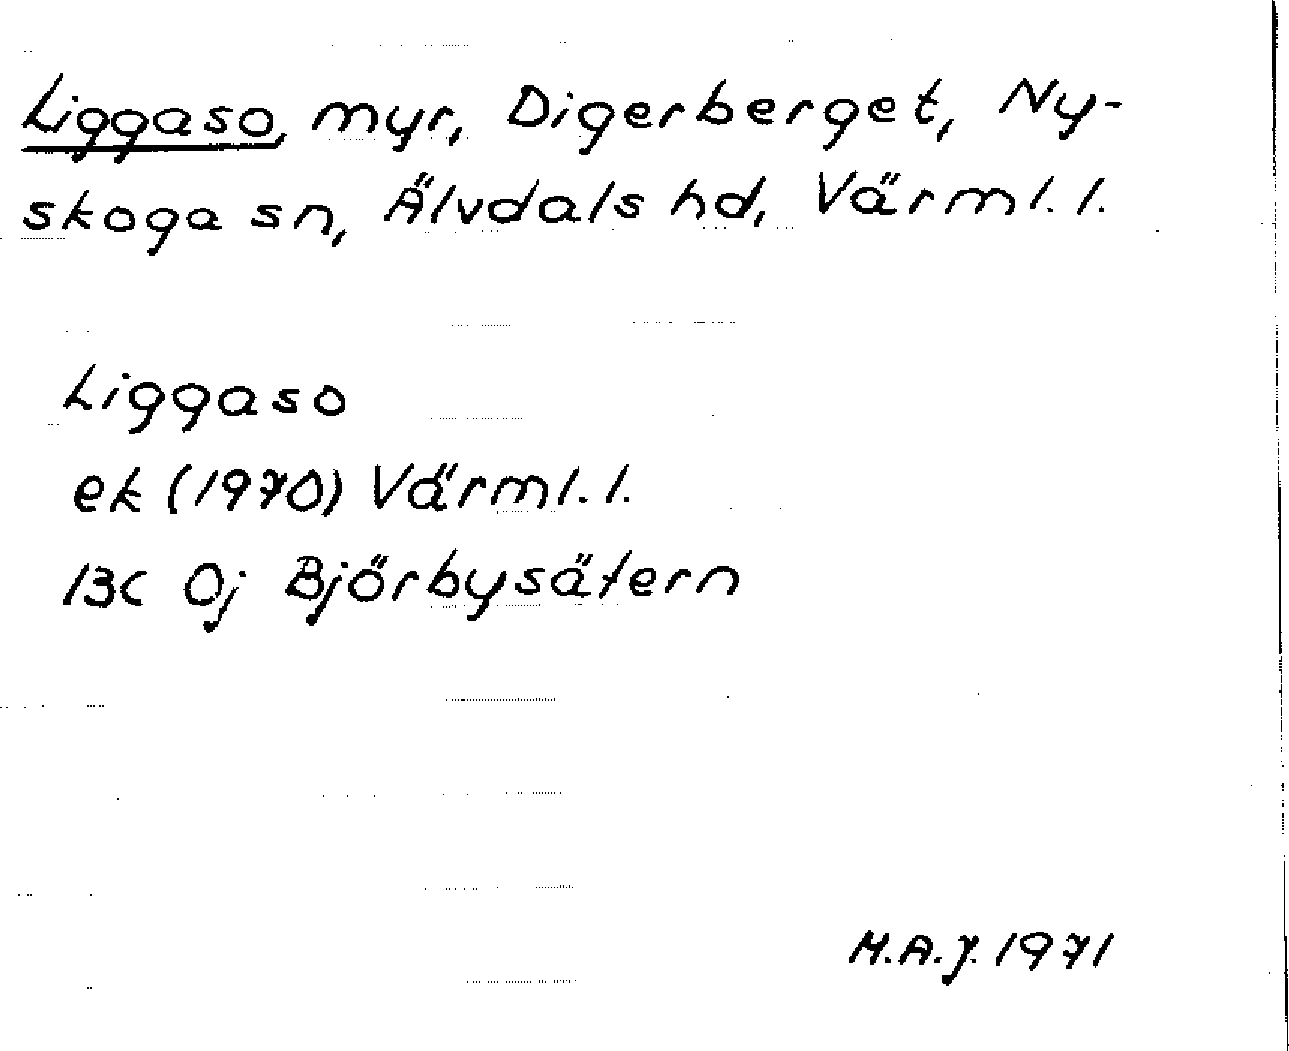 Liggaso, myr, Digerberget, Ny-
skoga sn, Älvdals hd, Värml. l.
Liggaso
ek (1970) Värml. l.
13C 0j Björbysätern
M.A.J. 1971